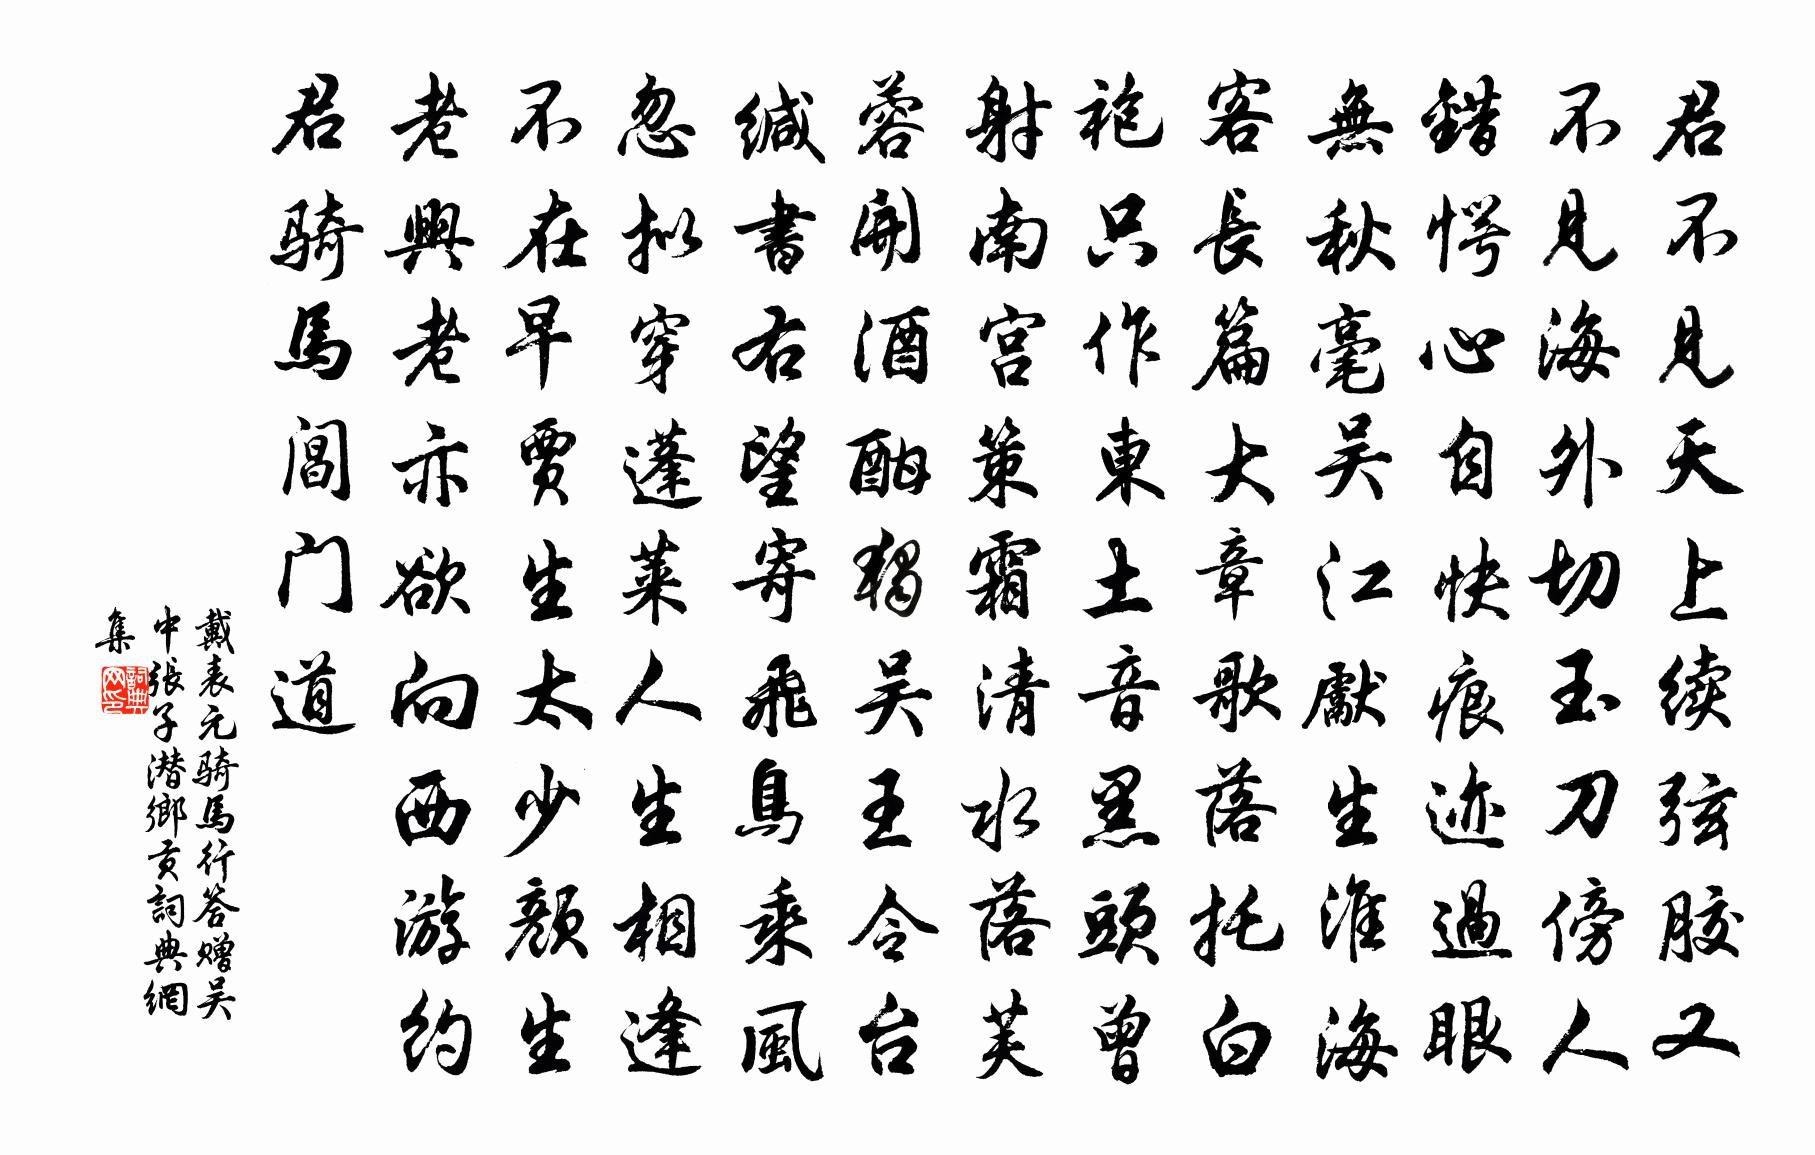 君不見天上续弦胶又
不見海外切玉刀傍人
錯愕心自快痕迹過眼
無秋毫吴江獻生淮海
客長篇大章歌落托白
袍只作東土音黑頭曾
射南宫策霜清水落芙
蓉開酒酣猲吴王令台
缄書右望寄飛鳥乘風
忽拟穿蓬莱人生相逢
不在早賈生太少颜生
老興老亦欲向西游约
君骑馬閶门道
戴表元骑馬行答赠吴
中張子潜鄉贡詞典網
集
詞典网印